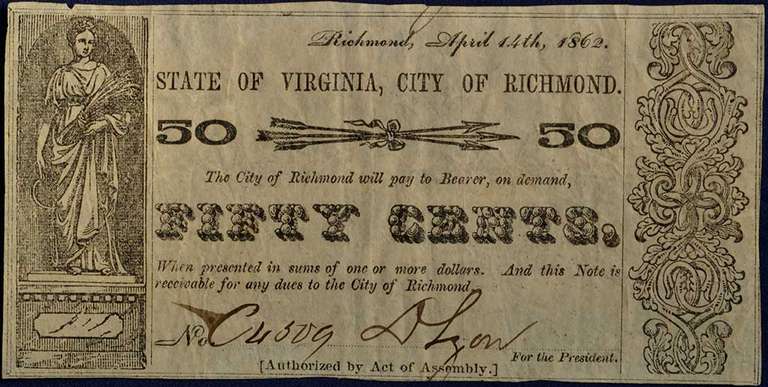 Richmond, April 14th, 1862.
STATE OF VIRGINIA, CITY OF RICHMOND.
50 50
The City of Richmond will pay to Bearer, on demand,
FIFTY CENTS,
When presented in sums of one or more dollars. And this Note is
receivable for any dues to the City of Richmond
No C4509 D Lyon
For the President.
[Authorized by Act of Assembly.]